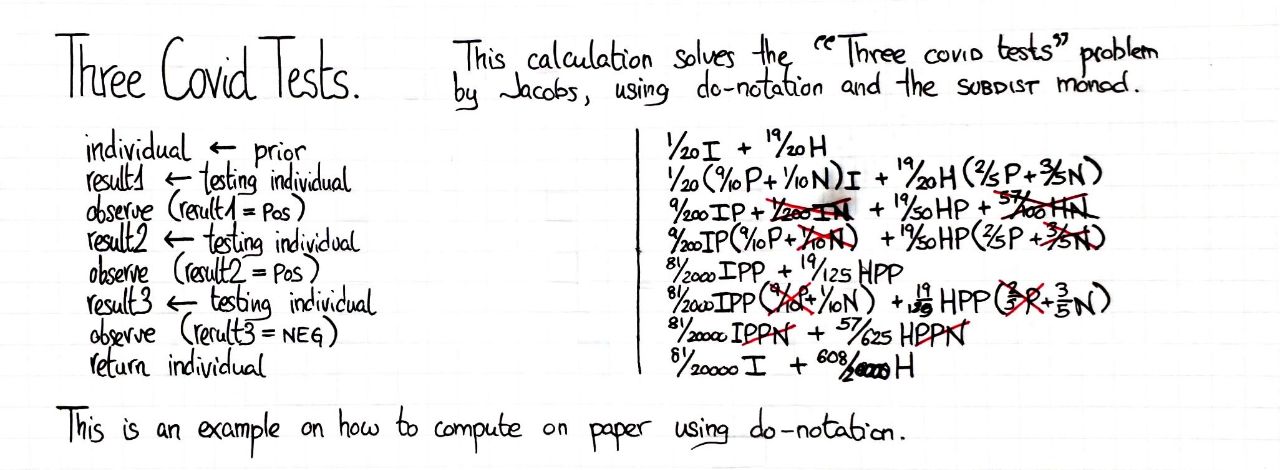 Three Covid Tests.
This calculation solves the "Three covid tests" problem
by Jacobs, using do-notation and the SUBDIST monad.
individual ← prior
result1 ← testing individual
observe (result1 = Pos)
result2 ← testing individual
observe (result2 = Pos)
result3 ← testing individual
observe (result3 = NEG)
return individual
1/20 I + 19/20 H
1/20 (9/10 P + 1/10 N) I + 19/20 H (2/5 P + 3/5 N)
9/200 IP + 1/200 IN + 19/50 HP + 57/100 HN
9/200 IP (9/10 P + 1/10 N) + 19/50 HP (2/5 P + 3/5 N)
81/2000 IPP + 19/125 HPP
81/2000 IPP (9/10 P + 1/10 N) + 19/125 HPP (2/5 P + 3/5 N)
81/20000 IPPN + 57/625 HPPN
81/20000 I + 608/ H
This is an example on how to compute on paper using do-notation.